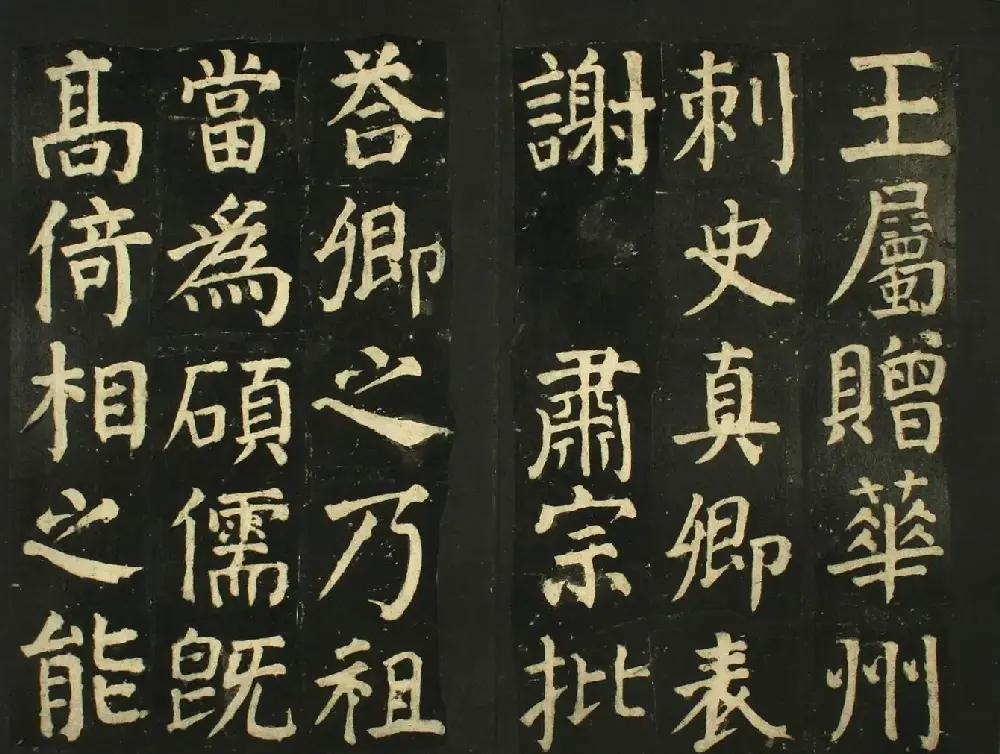 王屬贈華州
刺史真卿表
謝 肅宗批
荅卿之乃祖
當爲碩儒既
高倚相之能